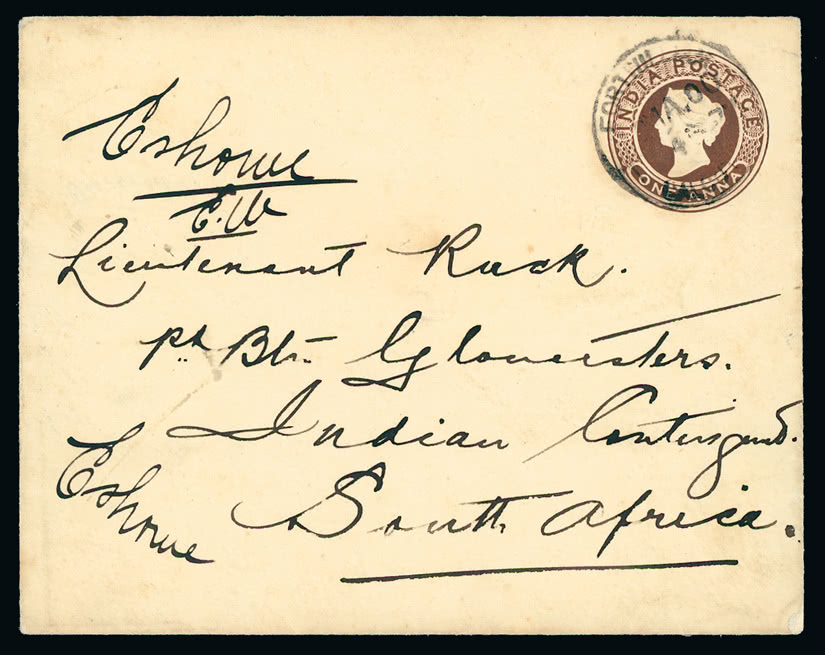 Eshowe
E.W
Lieutenant Rack.
Btn Gloucesters.
Indian Contingent.
South Africa.
Eshowe
INDIA POSTAGE
ONE ANNA
FORT W